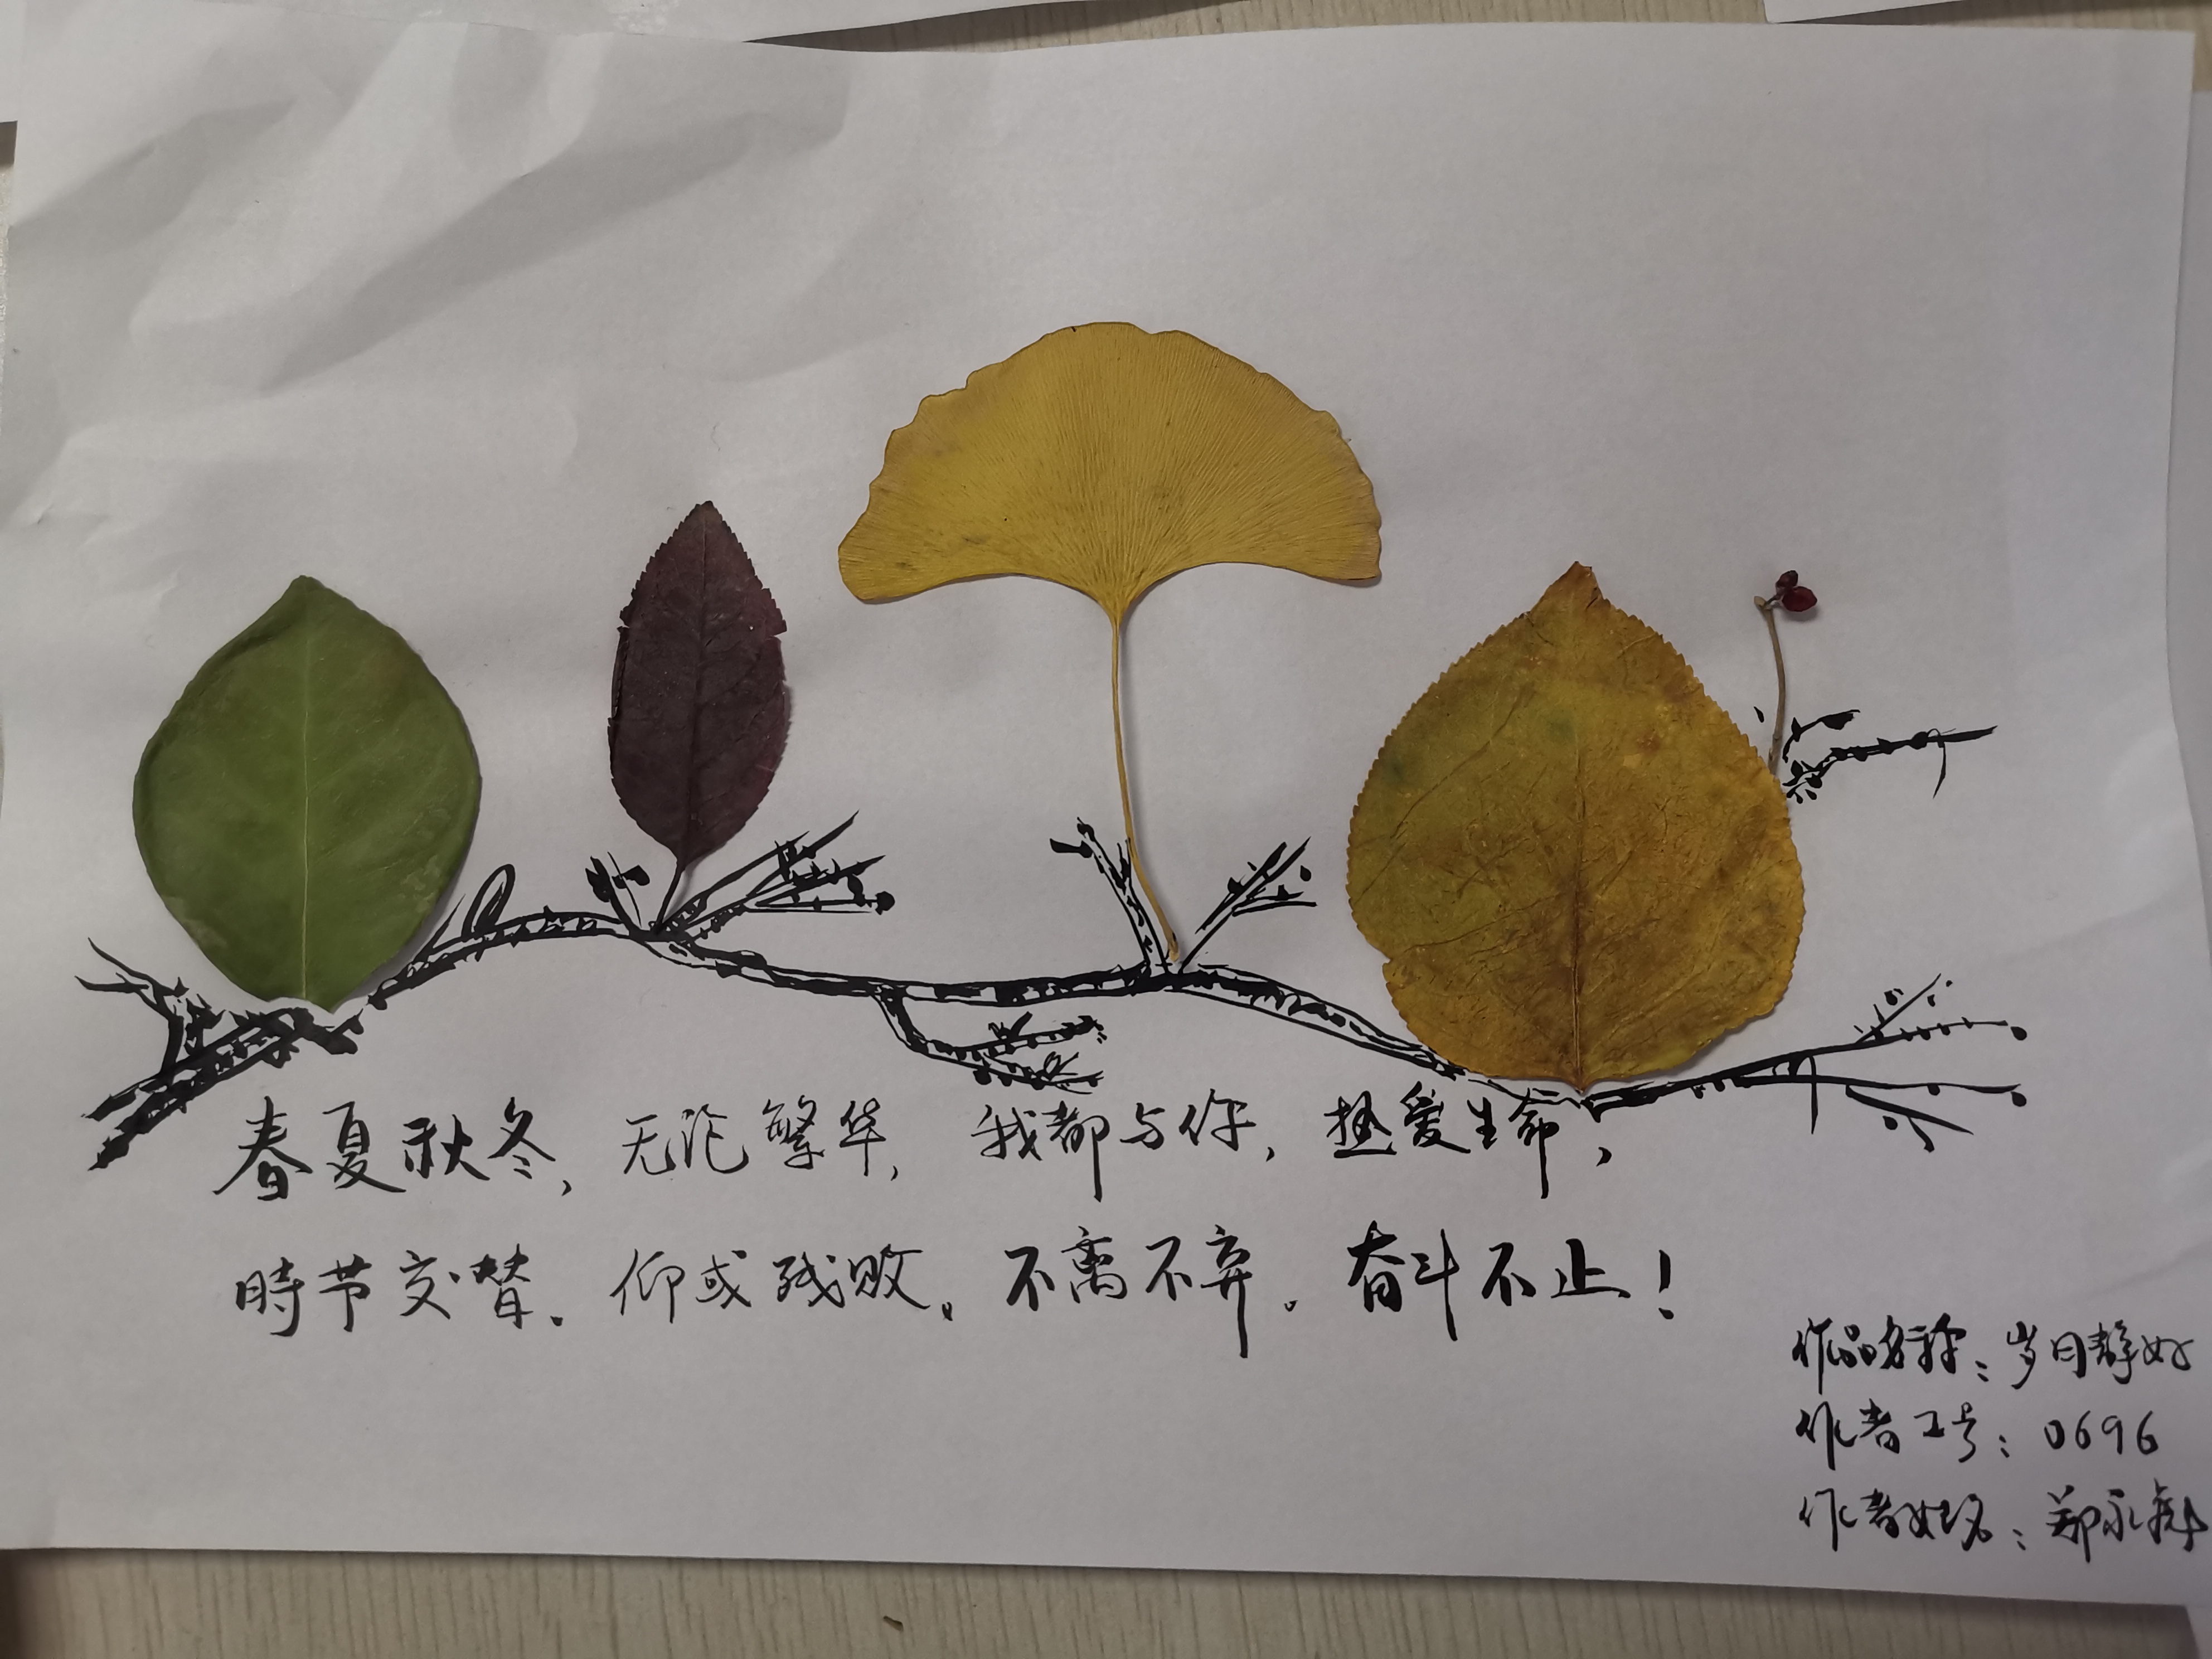 春夏秋冬，无论繁华，我都与你，热爱生命，
時节交替。仰或残败。不离不弃。奋斗不止！
作品名称：岁月静好
作者工号：0696
作者姓名：郑永